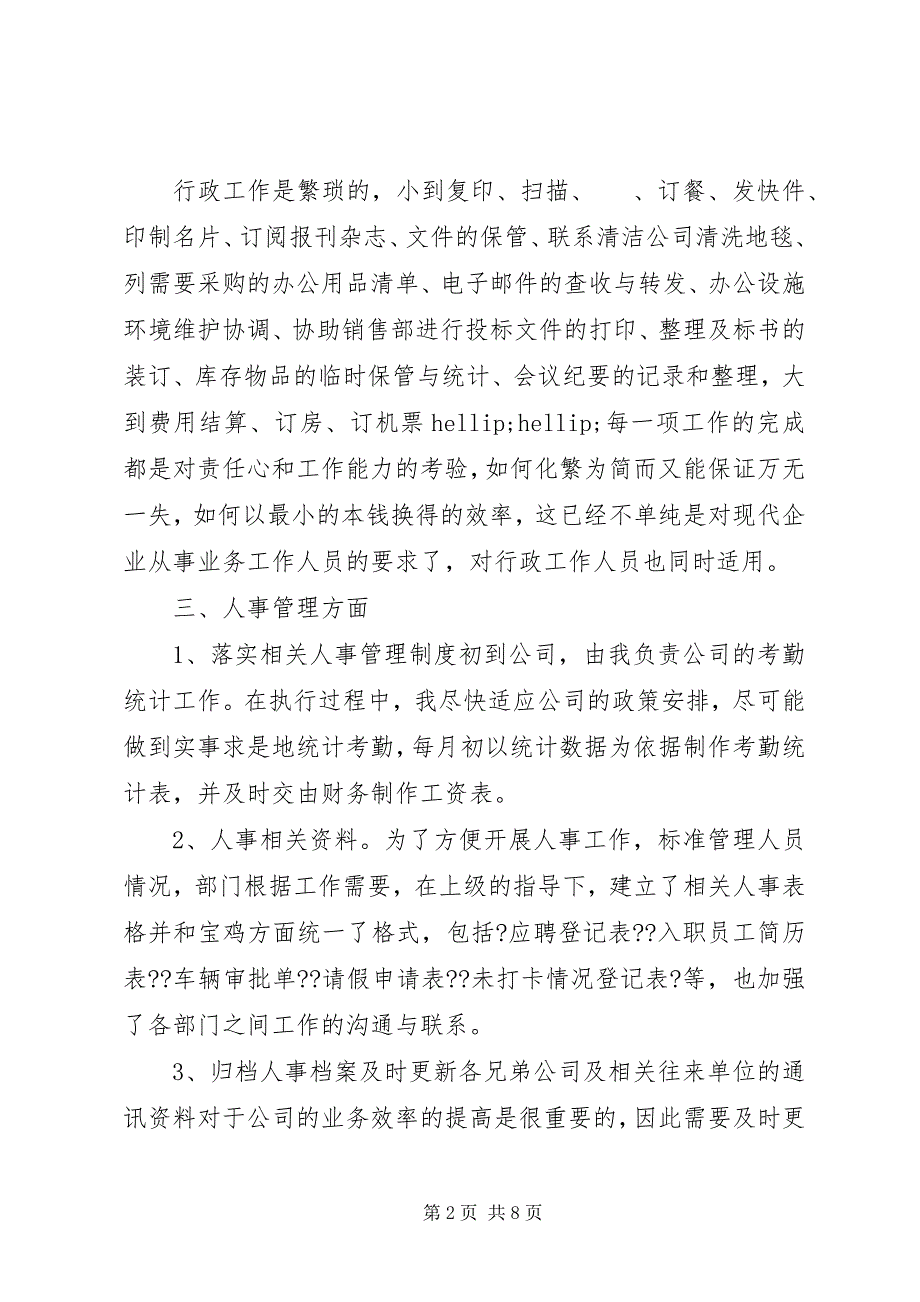 行政工作是繁琐的，小到复印、扫描、　　、订餐、发快件、
印制名片、订阅报刊杂志、文件的保管、联系清洁公司清洗地毯、
列需要采购的办公用品清单、电子邮件的查收与转发、办公设施
环境维护协调、协助销售部进行投标文件的打印、整理及标书的
装订、库存物品的临时保管与统计、会议纪要的记录和整理，大
到费用结算、订房、订机票hellip;hellip;每一项工作的完成
都是对责任心和工作能力的考验，如何化繁为简而又能保证万无
一失，如何以最小的本钱换得的效率，这已经不单纯是对现代企
业从事业务工作人员的要求了，对行政工作人员也同时适用。
三、人事管理方面
1、落实相关人事管理制度初到公司，由我负责公司的考勤
统计工作。在执行过程中，我尽快适应公司的政策安排，尽可能
做到实事求是地统计考勤，每月初以统计数据为依据制作考勤统
计表，并及时交由财务制作工资表。
2、人事相关资料。为了方便开展人事工作，标准管理人员
情况，部门根据工作需要，在上级的指导下，建立了相关人事表
格并和宝鸡方面统一了格式，包括?应聘登记表??入职员工简历
表??车辆审批单??请假申请表??未打卡情况登记表?等，也加强
了各部门之间工作的沟通与联系。
3、归档人事档案及时更新各兄弟公司及相关往来单位的通
讯资料对于公司的业务效率的提高是很重要的，因此需要及时更
第 2 页 共 8 页